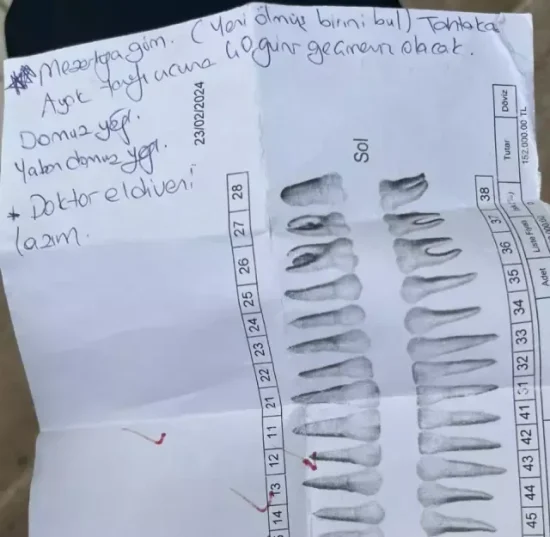 * Mezarlığa göm. (Yeni ölmüş birini bul) Tahtaka
Ayak ucuna 40 günü geçmemiş olacak.
Domuz yağı.
Yaban domuz yağı.
* Doktor eldiveni
lazım.
23/02/2024
Sol
28
27
26
25
24
23
22
21
11
12
13
14
38
37
36
35
34
33
32
31
41
42
43
44
45
Döviz
Tutar
152.000,00 TL
Liste Fiyatı
Adet